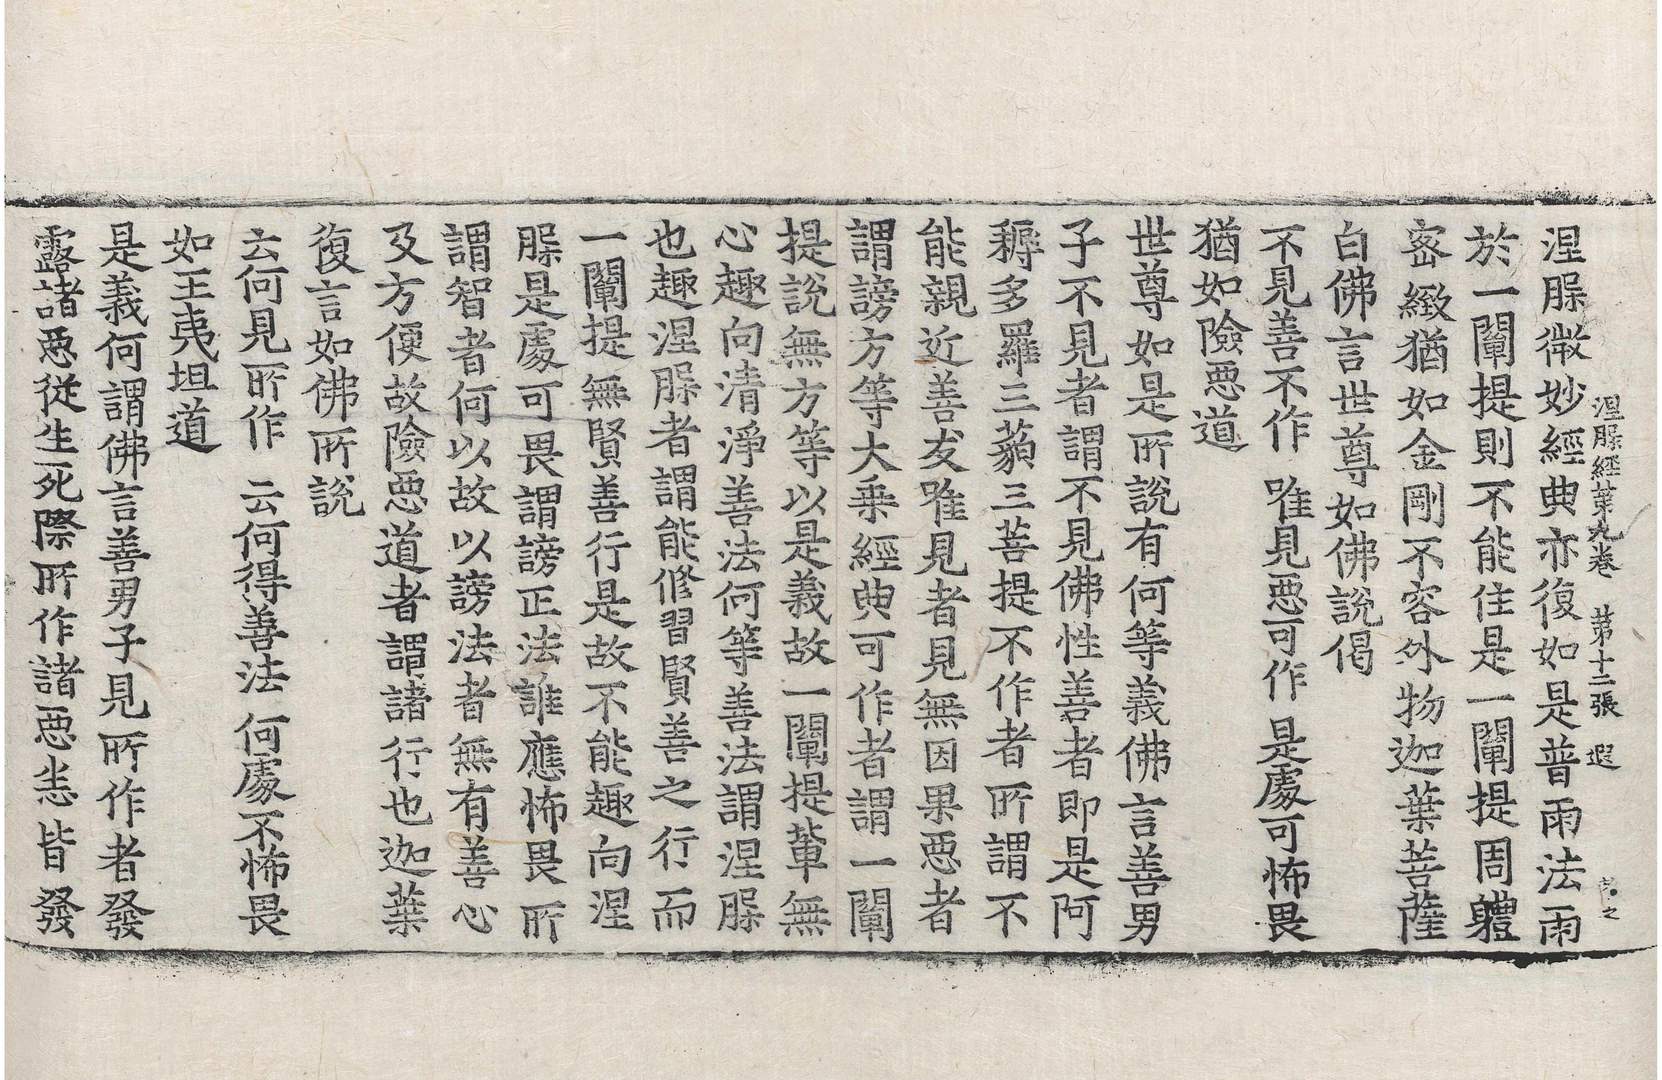 涅槃經第九卷　第十二張　遐
涅槃微妙經典亦復如是普雨法雨
於一闡提則不能住是一闡提周體
密緻猶如金剛不容外物迦葉菩薩
白佛言世尊如佛說偈
不見善不作　唯見惡可作　是處可怖畏
猶如險惡道
世尊如是所說有何等義佛言善男
子不見者謂不見佛性善者即是阿
耨多羅三藐三菩提不作者所謂不
能親近善友唯見者見無因果惡者
謂謗方等大乘經典可作者謂一闡
提說無方等以是義故一闡提輩無
心趣向清淨善法何等善法謂涅槃
也趣涅槃者謂能修習賢善之行而
一闡提無賢善行是故不能趣向涅
槃是處可畏謂謗正法誰應怖畏所
謂智者何以故以謗法者無有善心
及方便故險惡道者謂諸行也迦葉
復言如佛所說
云何見所作　云何得善法　何處不怖畏
如王夷坦道
是義何謂佛言善男子見所作者發
露諸惡從生死際所作諸惡悉皆發